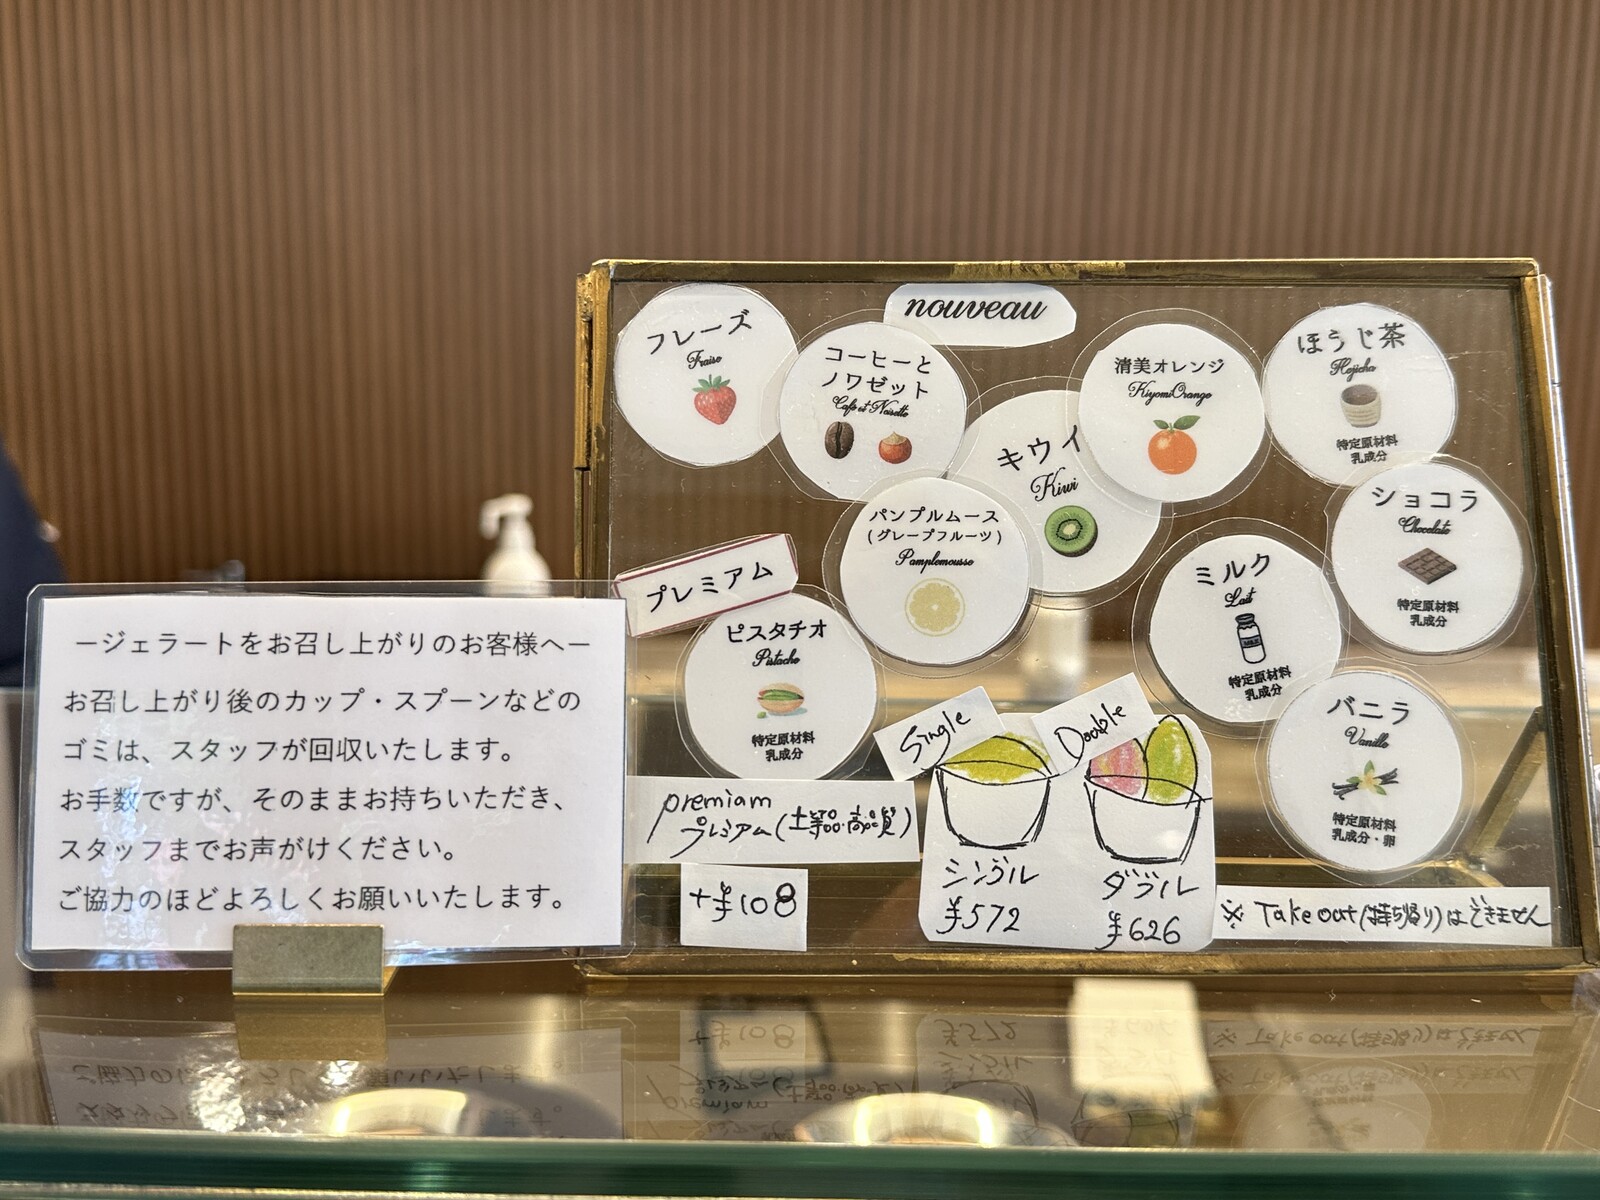 ージェラートをお召し上がりのお客様へー
お召し上がり後のカップ・スプーンなどの
ゴミは、スタッフが回収いたします。
お手数ですが、そのままお持ちいただき、
スタッフまでお声がけください。
ご協力のほどよろしくお願いいたします。
nouveau
フレーズ
Fraise
コーヒーと
ノワゼット
Café et Noisette
キウイ
Kiwi
清美オレンジ
KiyomiOrange
ほうじ茶
Hojicha
特定原材料
乳成分
パンプルムース
(グレープフルーツ)
Pamplemousse
ショコラ
Chocolate
特定原材料
乳成分
プレミアム
ピスタチオ
Pistache
特定原材料
乳成分
ミルク
Lait
特定原材料
乳成分
バニラ
Vanille
特定原材料
乳成分・卵
premiam
プレミアム(
+¥108
Single
シングル
¥572
Double
ダブル
¥626
※ Take out(持ち帰り)はできません